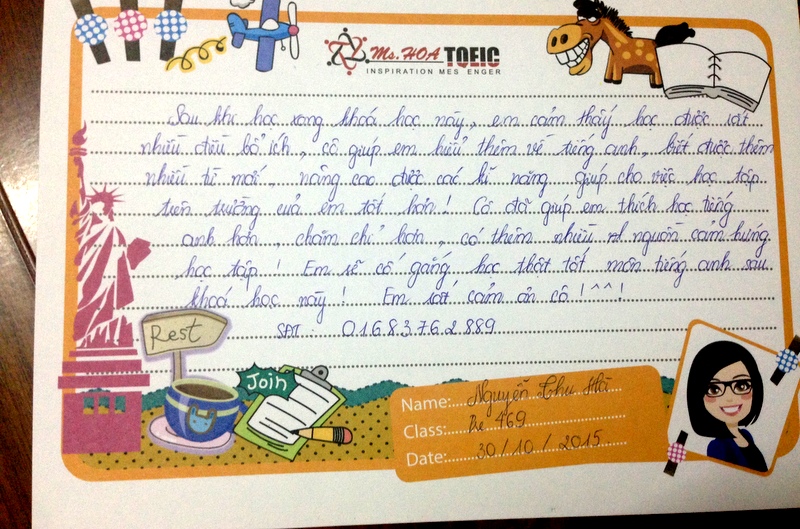 Ms. HOA TOEIC
INSPIRATION MES ENGER
Sau khi học xong khoá học này, em cảm thấy học được rất
nhiều điều bổ ích, cô giúp em hiểu thêm về tiếng anh, biết được thêm
nhiều từ mới, nâng cao được các kĩ năng giúp cho việc học tập
trên trường của em tốt hơn! Cô đã giúp em thích học tiếng
anh hơn, chăm chỉ hơn, có thêm nhiều nguồn cảm hứng
học tập! Em sẽ cố gắng học thật tốt môn tiếng anh sau
khoá học này! Em rất cảm ơn cô!^^!
SĐT: 01683762889
Rest
Join
Name: Nguyễn Thu Hà
Class: Pre 469
Date: 30/10/2015